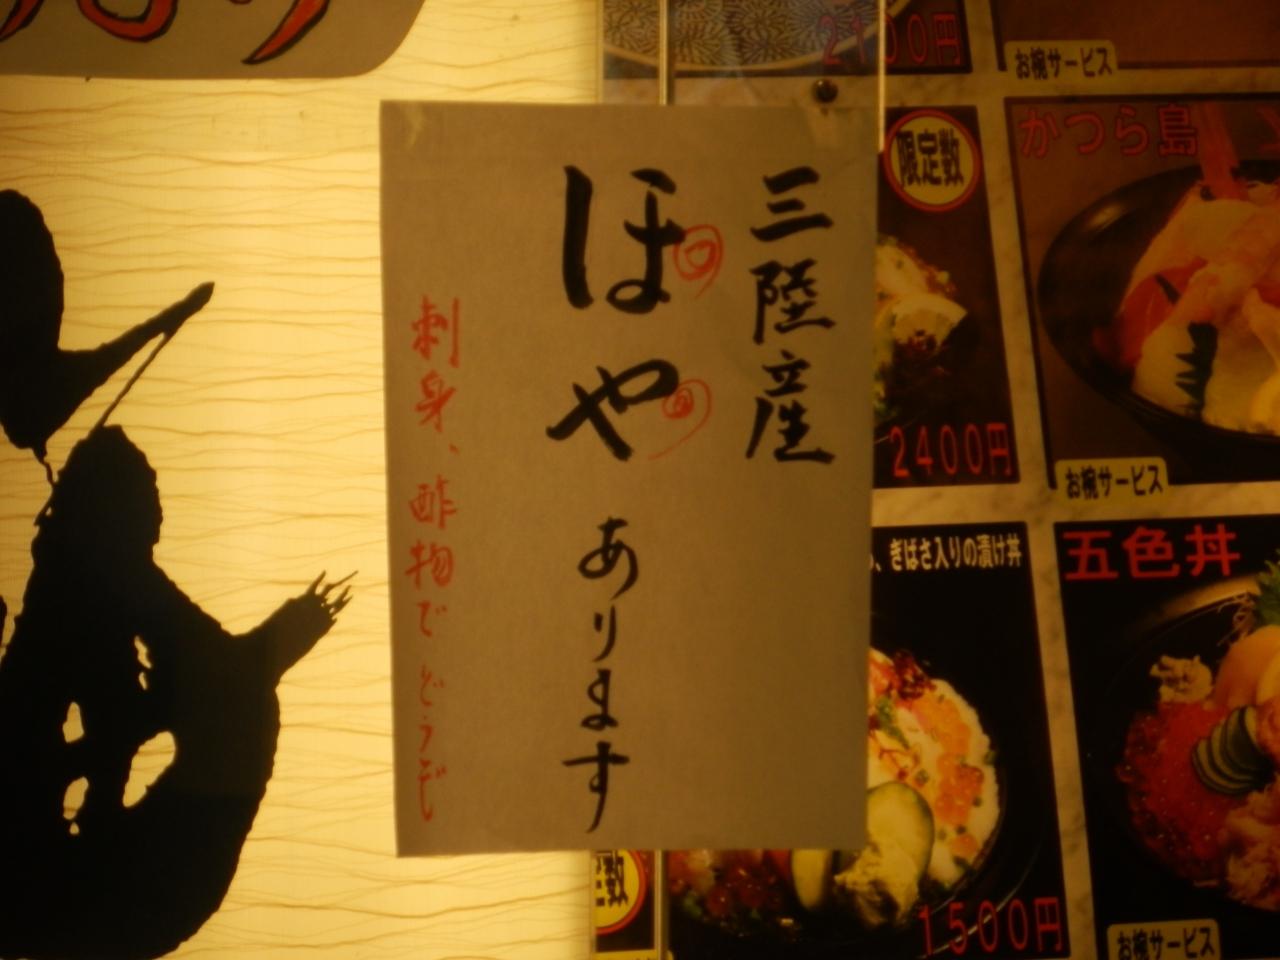 三陸産
ほや あります
刺身、酢物でどうぞ
2100円
お椀サービス
限定数
かつら島
2400円
お椀サービス
、ぎばさ入りの漬け丼
五色丼
数
1500円
お椀サービス